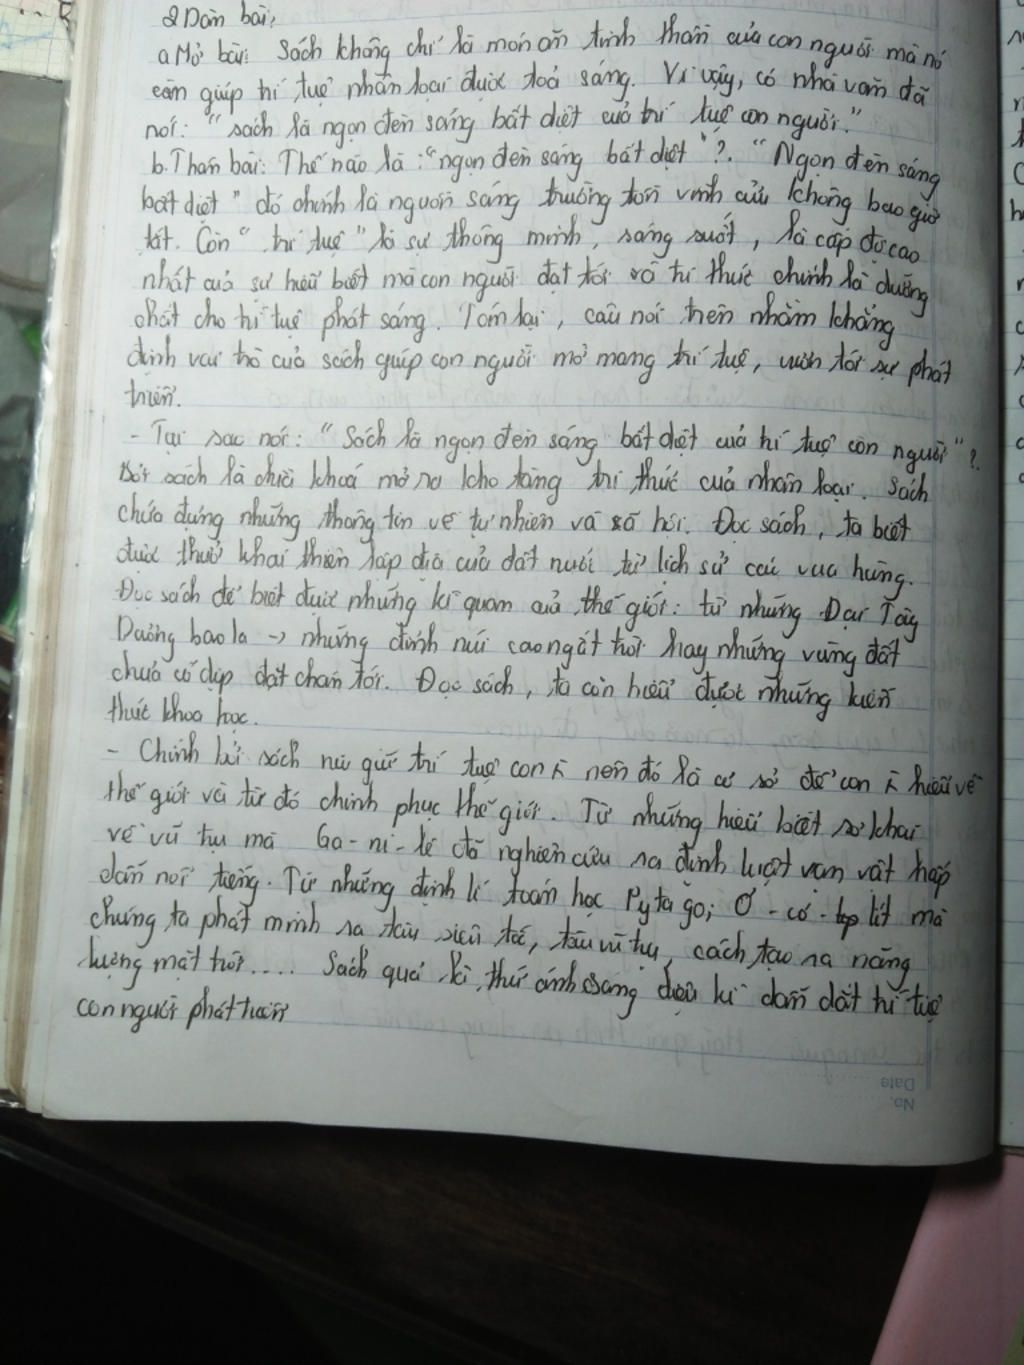 2 Dàn bài:
a Mở bài: Sách không chỉ là món ăn tinh thần của con người mà nó
còn giúp trí tuệ nhân loại được toả sáng. Vì vậy, có nhà văn đã
nói: "sách là ngọn đèn sáng bất diệt của trí tuệ con người."
b. Thân bài: Thế nào là: "ngọn đèn sáng bất diệt"?. "Ngọn đèn sáng
bất diệt" đó chính là nguồn sáng trường tồn vĩnh cửu không bao giờ
tắt. Còn "trí tuệ" là sự thông minh, sáng suốt, là cấp độ cao
nhất của sự hiểu biết mà con người đạt tới và tri thức chính là dưỡng
chất cho trí tuệ phát sáng. Tóm lại, câu nói trên nhằm khẳng
định vai trò của sách giúp con người mở mang trí tuệ, vươn tới sự phát
triển.
- Tại sao nói: "Sách là ngọn đèn sáng bất diệt của trí tuệ con người"?
Bởi sách là chìa khoá mở ra kho tàng tri thức của nhân loại. Sách
chứa đựng những thông tin về tự nhiên và xã hội. Đọc sách, ta biết
được thuở khai thiên lập địa của đất nước từ lịch sử các vua hùng.
Đọc sách để biết được những kì quan của thế giới: từ những Đại Tây
Dương bao la -> những đỉnh núi cao ngất trời hay những vùng đất
chưa có dịp đặt chân tới. Đọc sách, ta còn hiểu được những kiến
thức khoa học.
- Chính bởi sách lưu giữ trí tuệ con ꞧ nên đó là cơ sở để con ꞧ hiểu về
thế giới và từ đó chinh phục thế giới. Từ những hiểu biết sơ khai
về vũ trụ mà Ga-ni-lê đã nghiên cứu ra định luật vạn vật hấp
dẫn nổi tiếng. Từ những định lí toán học Pytago; Ơ-cơ-lít mà
chúng ta phát minh ra tàu siêu tốc, tàu vũ trụ, cách tạo ra năng
lượng mặt trời.... Sách quả là thứ ánh sáng diệu kì dẫn dắt trí tuệ
con người phát triển
No.
Date